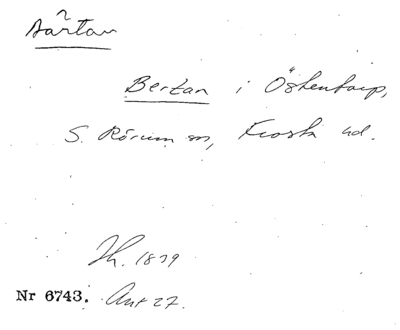 Bertan i Östentorp,
S. Rörum sn, Frosta hd.
Th. 1839
Nr 6743. Ant 27.